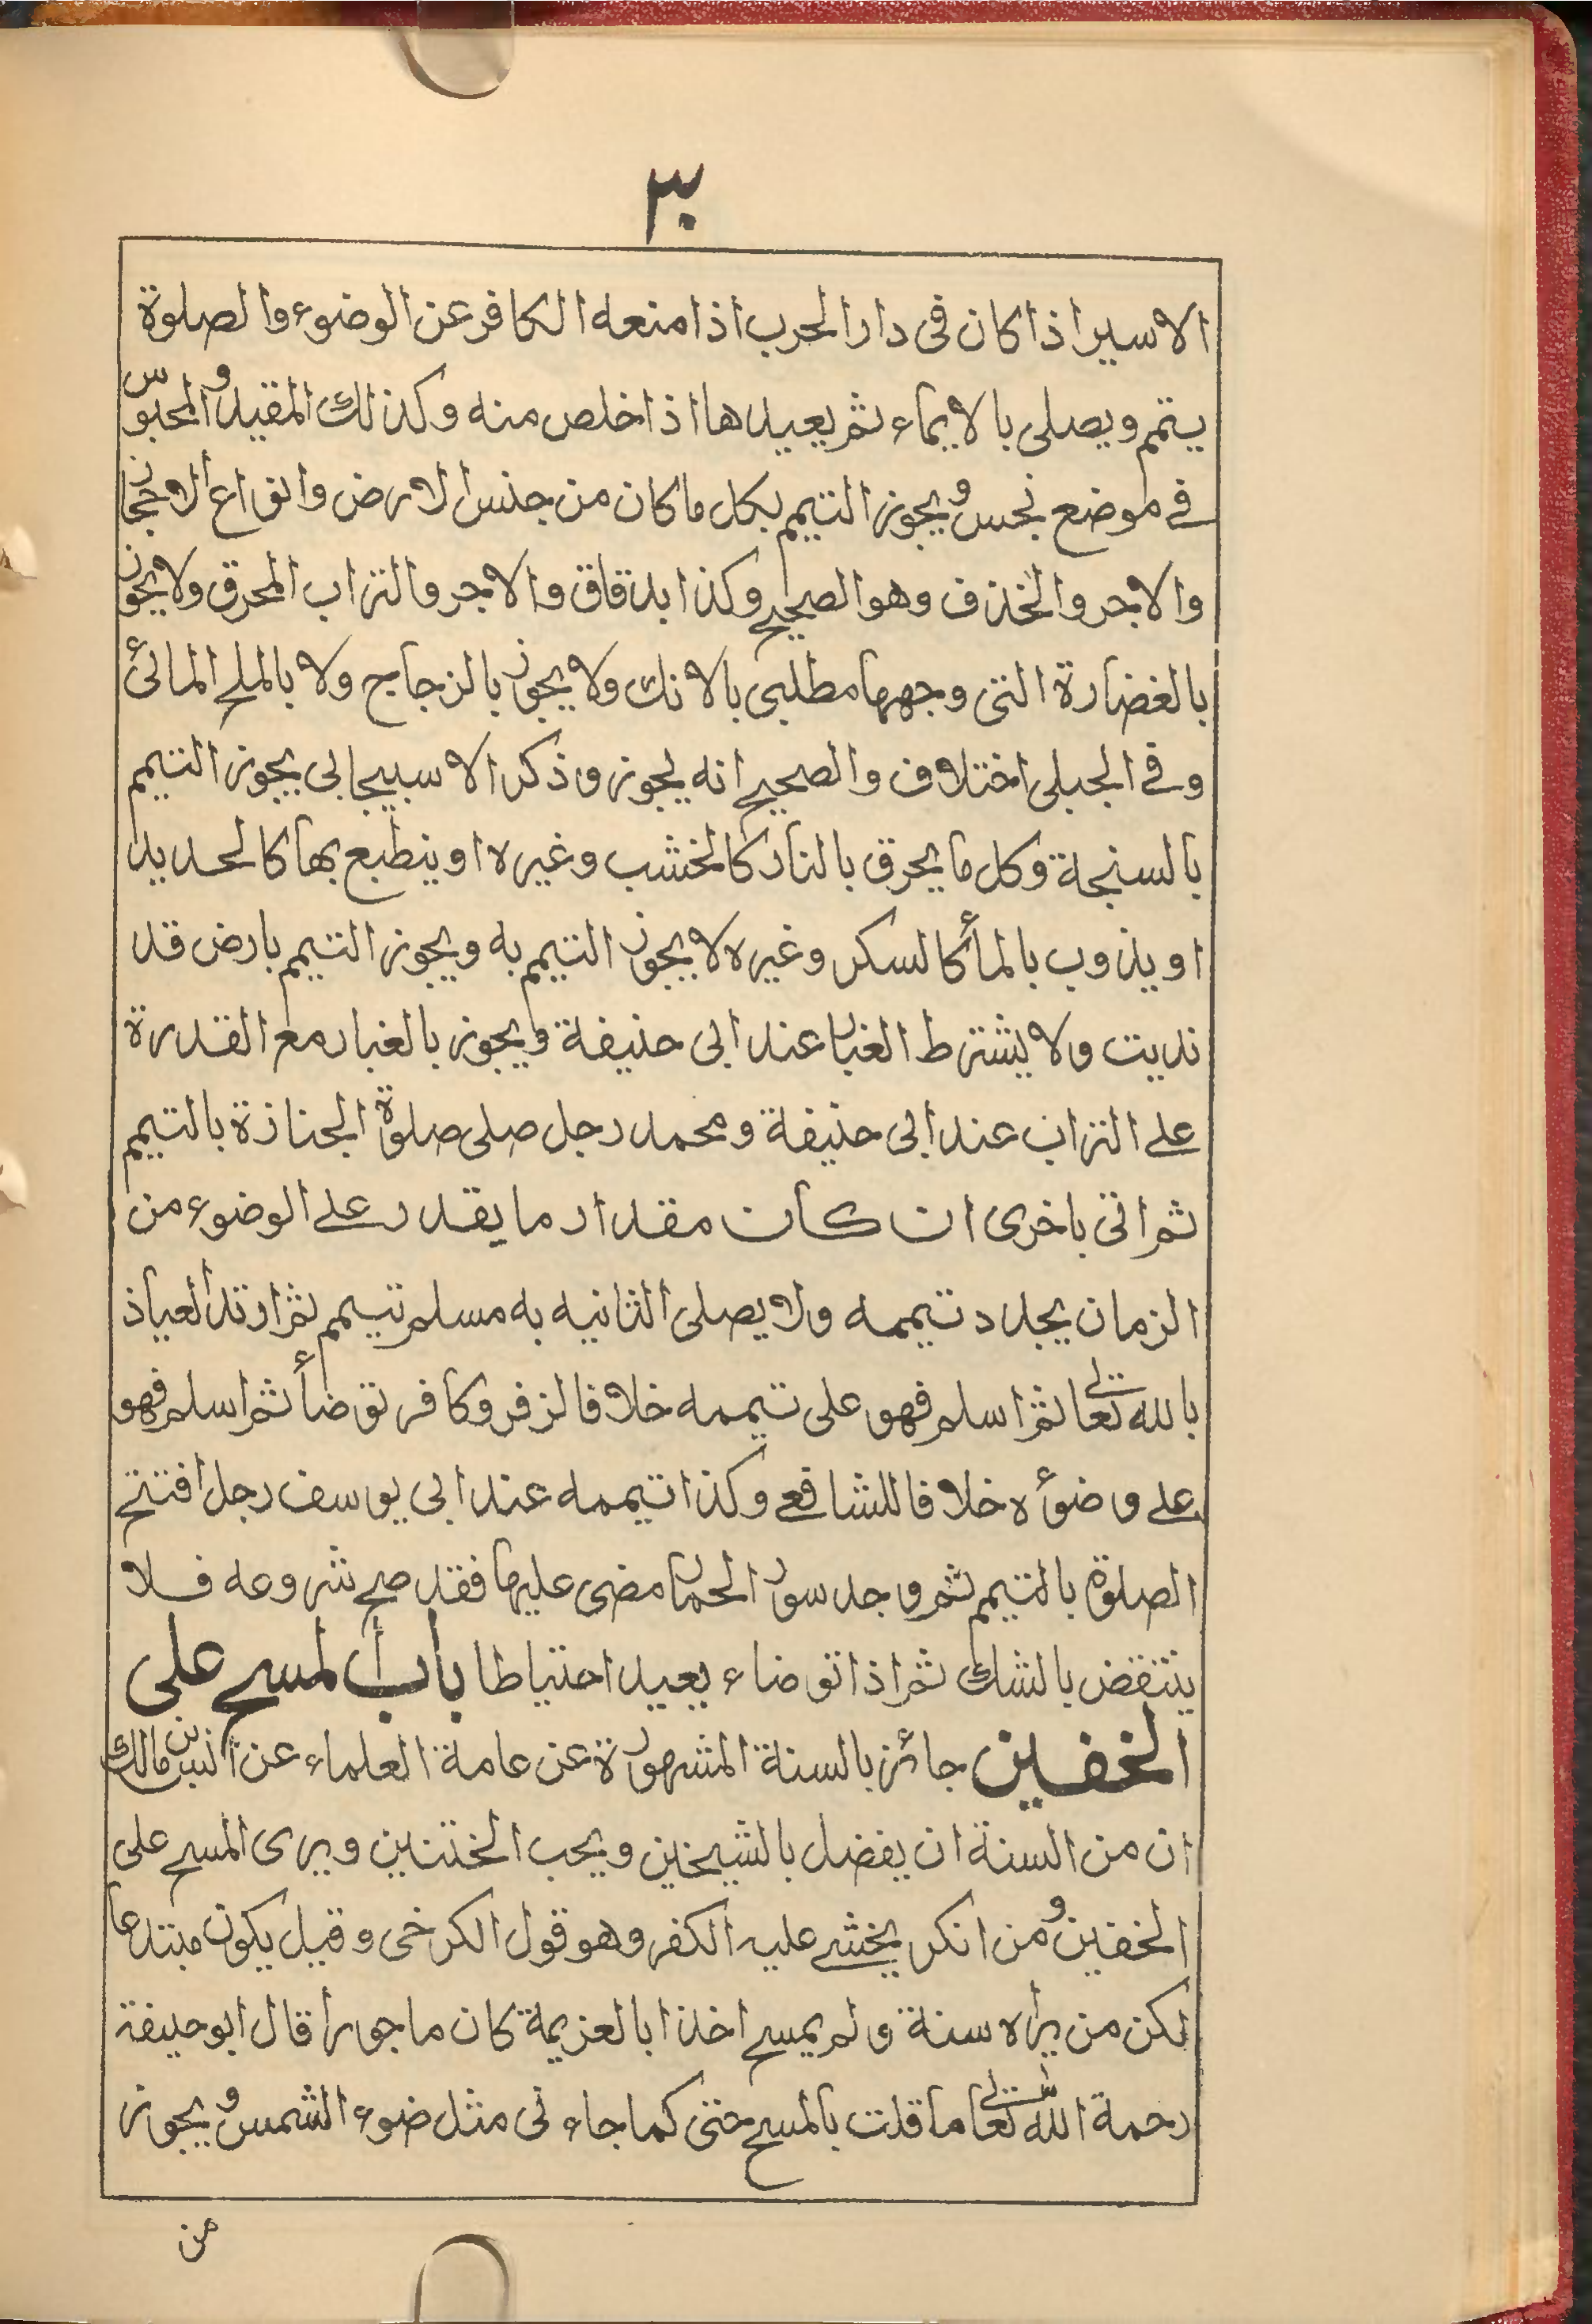 ٣٠
الاسير اذا كان فى دار الحرب اذا منعه الكافر عن الوضوء والصلوة
يتمم ويصلى بالايماء ثم يعيدها اذا خلص منه وكذلك المقيد والمحبوس
فے موضع نجس ويجوز التيمم بكل ما كان من جنس الارض وانواع الاحجار
والاجر والخذف وهو الصحيح وكذا بدقاق والاجر والتراب المحرق ولا يجوز
بالغضارة التى وجهها مطلبى بالانك ولا يجوز بالزجاج ولا بالملح المائى
وفے الجبلى اختلاف والصحيح انه يجوز وذكر الاسبيجابى يجوز التيمم
بالسنجة وكل ما يحرق بالنار كالخشب وغيره او ينطبع بها كالحديد
او يذوب بالمأ كالسكر وغيره لا يجوز التيمم به ويجوز التيمم بارض قد
نديت ولا يشترط الغبار عند ابى حنيفة ويجوز بالغبار مع القدرة
علے التراب عند ابى حنيفة ومحمد رجل صلى صلوة الجنازة بالتيمم
ثم اتى باخرى ان كان مقدار ما يقدر علے الوضوء من
الزمان يجدد تيممه ولا يصلى الثانيه به مسلم تيمم ثم ارتد العياذ
بالله تعالى ثم اسلم فهو على تيممه خلافا لزفر وكافر توضأ ثم اسلم فهو
علے وضوئه خلافا للشافعے وكذا تيممه عند ابى يوسف رجل افتتح
الصلوة بالتيمم ثم وجد سور الحمار مضى عليها فقد صح شروعه فلا
ينتقض بالشك ثم اذا توضاء يعيد احتياطا باب المسح على
الخفين جائز بالسنة المشهورة عن عامة العلماء عن انس بن مالك
ان من السنة ان يفضل بالشيخين ويحب الختنين ويرى المسح على
الخفين ومن انكر يخشے عليه الكفر وهو قول الكرخى وقيل يكون مبتدعا
لكن من يراه سنة ولم يمسح اخذا بالعزيمة كان ماجورا قال ابو حنيفة
رحمة الله تعالى ما قلت بالمسح حتى كما جاء نى مثل ضوء الشمس ويجوز
من